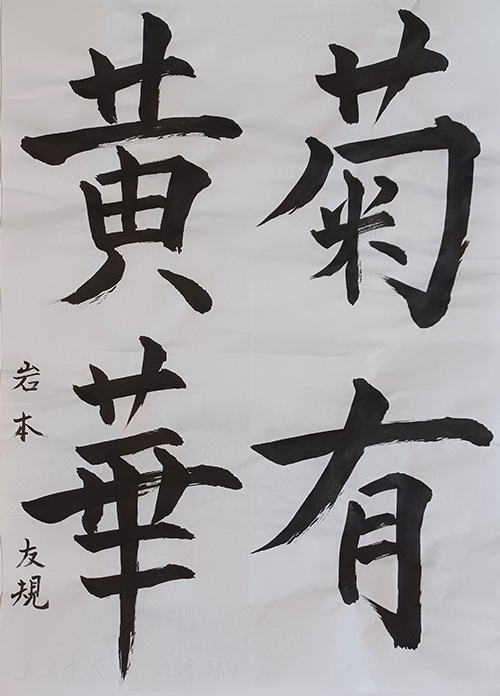 菊有
黄華
岩本 友規